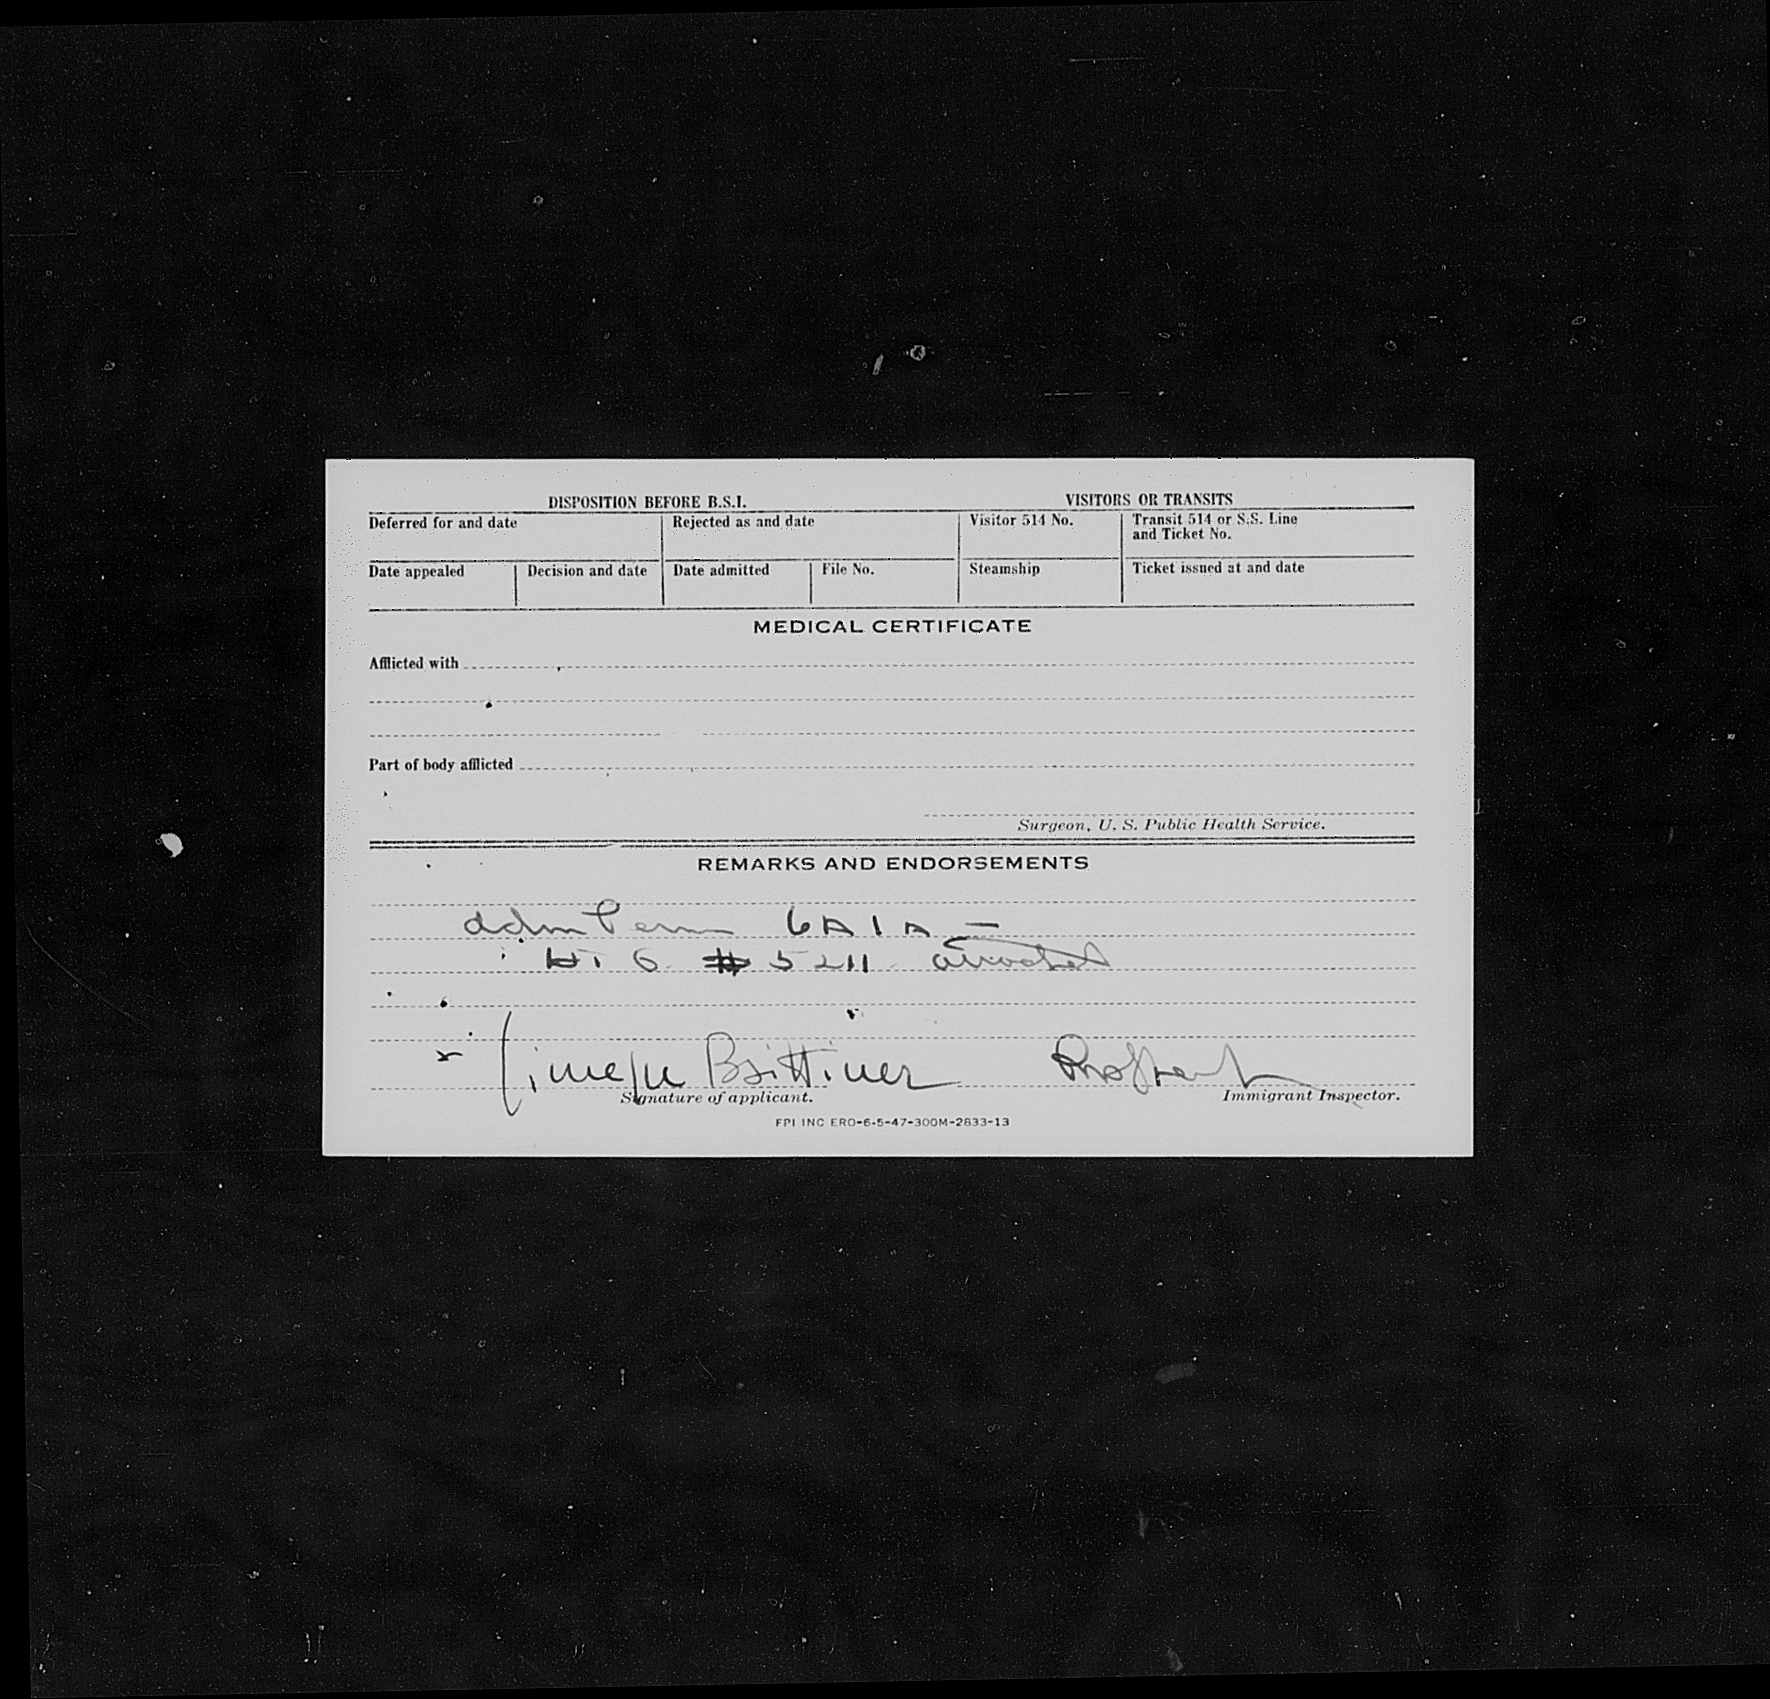 DISPOSITION BEFORE B.S.I. VISITORS OR TRANSITS
Deferred for and date Rejected as and date Visitor 514 No. Transit 514 or S.S. Line and Ticket No.
Date appealed Decision and date Date admitted File No. Steamship Ticket issued at and date
MEDICAL CERTIFICATE
Afflicted with
Part of body afflicted
Surgeon, U. S. Public Health Service.
REMARKS AND ENDORSEMENTS
adm Perm 6A1A –
6 # 5211 attached
Brittiner
Signature of applicant. Immigrant Inspector.
FPI INC ERO-6-5-47-300M-2833-13